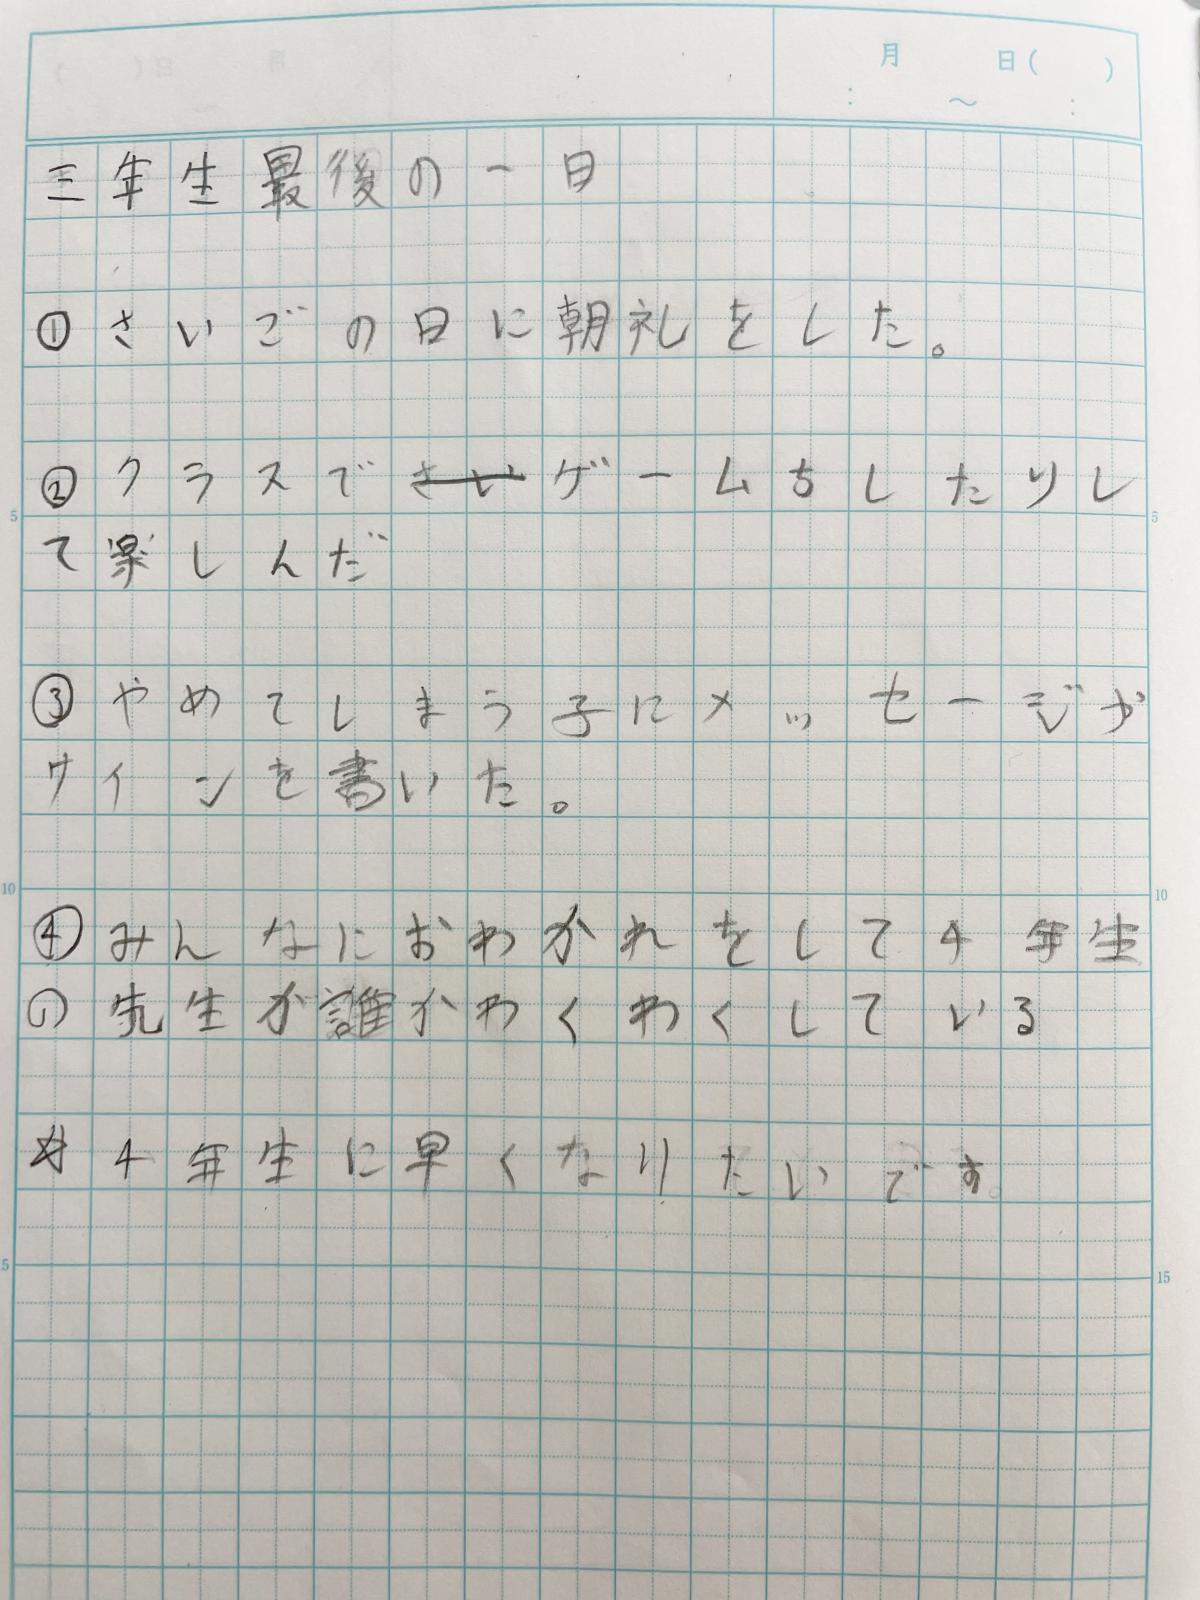 月 日( )
: ～ :
三年生最後の一日
①さいごの日に朝礼をした。
②クラスでさいゲームをしたりし
5 5
て楽しんだ
③やめてしまう子にメッセージか
サインを書いた。
10 10
④みんなにおわかれをして4年生
の先生が誰かわくわくしている
4年生に早くなりたいです。
5 15